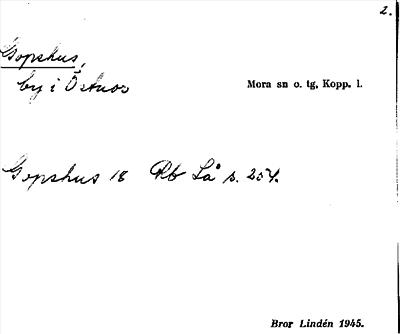 2.
Gopshus,
by i Östnor
Mora sn o. tg, Kopp. l.
Gopshus 18 Rb Så s. 254.
Bror Lindén 1945.